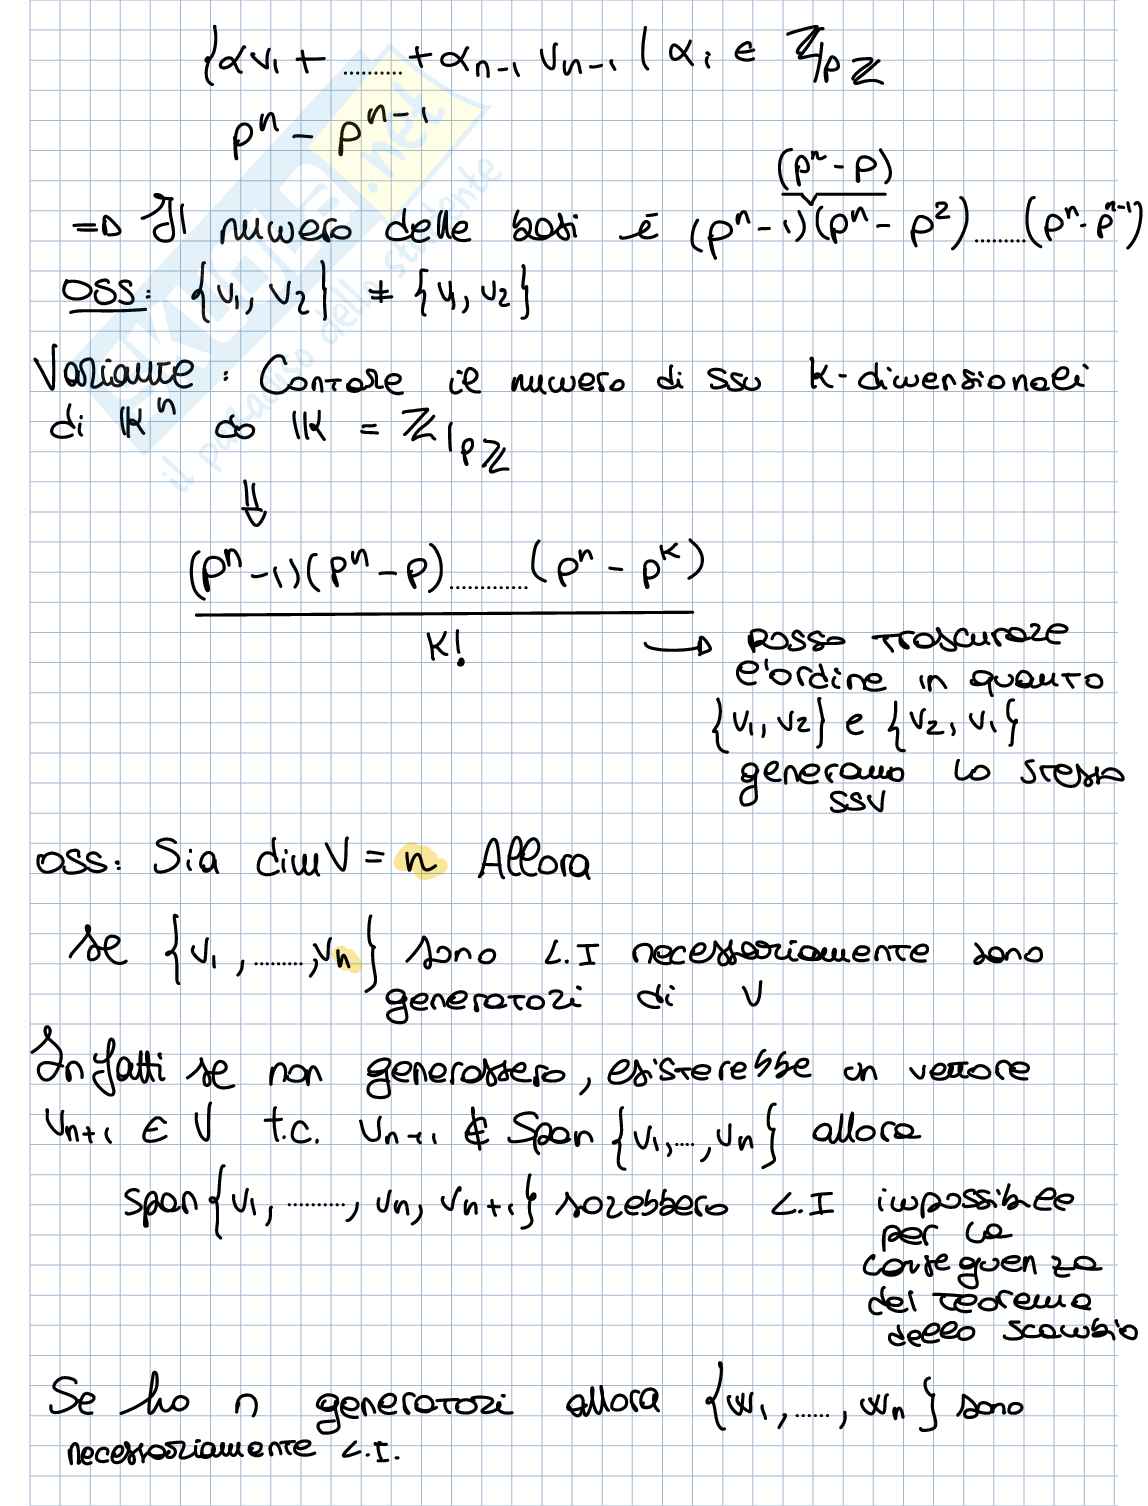 {αv₁ + .......... + αₙ₋₁ vₙ₋₁ | αᵢ ∈ ℤ/pℤ
pⁿ - pⁿ⁻¹
(pⁿ - p)
=> Il numero delle basi è (pⁿ - 1)(pⁿ - p²) ......... (pⁿ - pⁿ⁻¹)
OSS: {v₁, v₂} ≠ {v₁, v₂}
Variante: Contare il numero di ssv k-dimensionali
di 𝕂ⁿ da 𝕂 = ℤ/pℤ
⇓
(pⁿ - 1)(pⁿ - p) ............. (pⁿ - pᵏ)
k!
→ posso trascurare
l'ordine in quanto
{v₁, v₂} e {v₂, v₁}
generano lo stesso
SSV
OSS: Sia dim V = n Allora
se {v₁, ........., vₙ} sono L.I necessariamente sono
generatori di V
Infatti se non generassero, esisterebbe un vettore
vₙ₊₁ ∈ V t.c. vₙ₊₁ ∉ Span {v₁, ..., vₙ} allora
span{v₁, .........., vₙ, vₙ₊₁} sarebbero L.I impossibile
per la
conseguenza
del teorema
dello scambio
Se ho n generatori allora {w₁, ......, wₙ} sono
necessariamente L.I.
SKUOLA.net
il paradiso dello studente